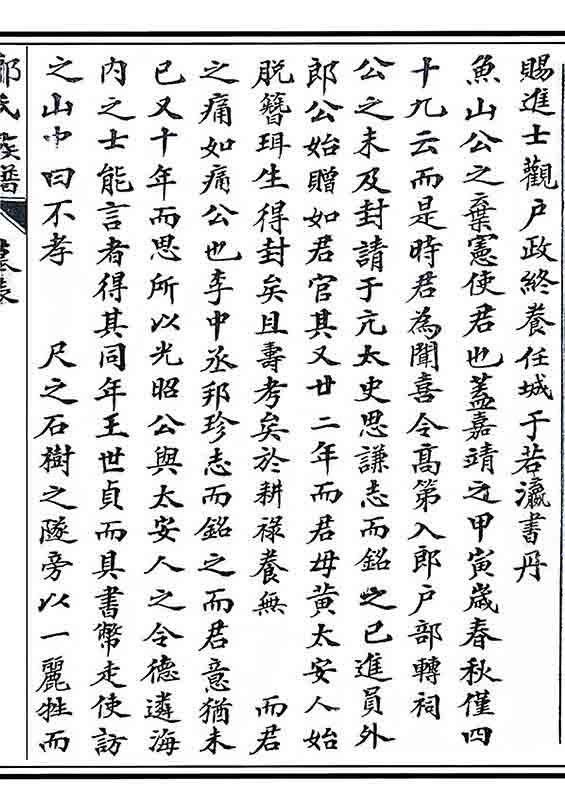 賜進士觀戶政終養任城于若瀛書丹
魚山公之棄憲使君也蓋嘉靖之甲寅歲春秋僅四
十九云而是時君為聞喜令高第入郎戶部轉祠
公之未及封請于亢太史思謙志而銘之已進員外
郎公始贈如君官其又廿二年而君母黄太安人始
脱簪珥生得封矣且壽考矣於耕祿養無 而君
之痛如痛公也李中丞邦珍志而銘之而君意猶未
已又十年而思所以光昭公與太安人之令德遴海
内之士能言者得其同年王世貞而具書幣走使訪
之山中曰不孝 尺之石樹之隧旁以一麗牲而
氏族譜 墓表